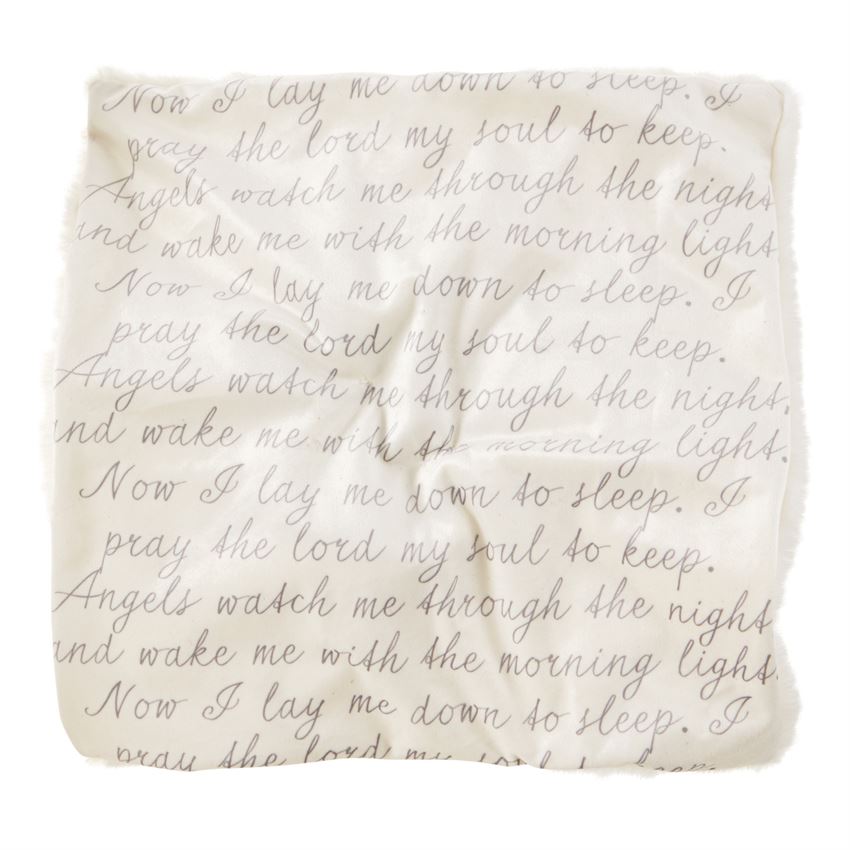 Now I lay me down to sleep. I
pray the lord my soul to keep.
Angels watch me through the night
and wake me with the morning light
Now I lay me down to sleep. I
pray the lord my soul to keep.
Angels watch me through the night.
and wake me with the morning light.
Now I lay me down to sleep. I
pray the lord my soul to keep.
Angels watch me through the night
and wake me with the morning light.
Now I lay me down to sleep. I
pray the lord my soul to keep.